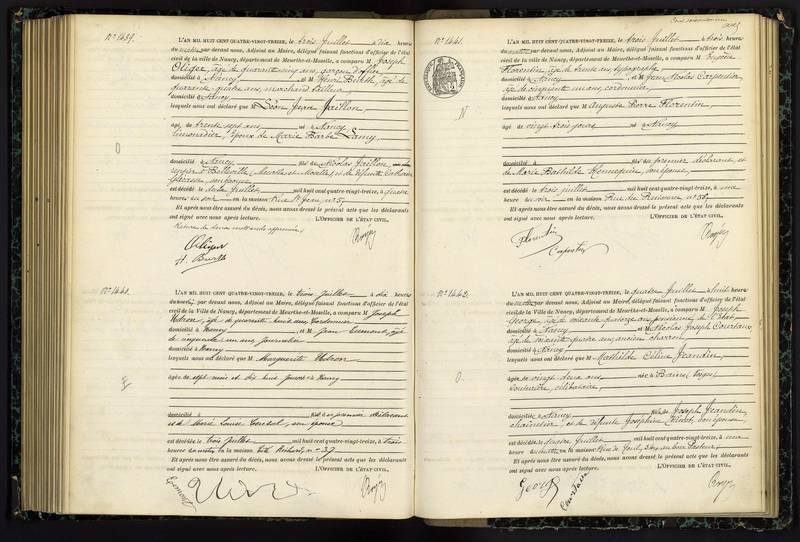 N° 1439.
L'AN MIL HUIT CENT QUATRE-VINGT-TREIZE, le trois Juillet à dix heures
du matin par devant nous, Adjoint au Maire, délégué faisant fonctions d'officier de l'état
civil de la ville de Nancy, département de Meurthe-et-Moselle, a comparu M. Joseph
Oliger, âgé de quarante cinq ans, garçon d'office
domicilié à Nancy et M. Henri Buchth, âgé de
quarante quatre ans, marchand tailleur
domicilié à Nancy
lesquels nous ont déclaré que Léon Jean Jaillon,
âgé de trente sept ans né à Nancy
limonadier, époux de Marie Barbe Lamy
domicilié à Nancy fils de Nicolas Jaillon,
Belleville (Meurthe et Moselle), et de défunte Catherine
son épouse
est décédé le deux Juillet mil huit cent quatre-vingt-treize, à quatre
heures du soir en la maison Rue St Jean, n° 5
Et après nous être assuré du décès, nous avons dressé le présent acte que les déclarants
ont signé avec nous après lecture. L'OFFICIER DE L'ÉTAT CIVIL,
Oliger
N° 1440.
L'AN MIL HUIT CENT QUATRE-VINGT-TREIZE, le trois Juillet à dix heures
du matin, par devant nous, Adjoint au Maire, délégué faisant fonctions d'officier de l'état
civil de la Ville de Nancy, département de Meurthe-et-Moselle, a comparu M. Joseph
âgé de quarante huit ans, Cordonnier
domicilié à Nancy et M. Jean
de cinquante un ans Journalier
domicilié à Nancy
lesquels nous ont déclaré que Marguerite
âgée de sept mois et dix huit jours née à Nancy
domicilié à fille du premier déclarant
et de Marie Louise son épouse
est décédée le trois Juillet mil huit cent quatre-vingt-treize, à trois
heures du matin en la maison n° 37
Et après nous être assuré du décès, nous avons dressé le présent acte que les déclarants
ont signé avec nous après lecture. L'OFFICIER DE L'ÉTAT CIVIL,
N° 1441.
L'AN MIL HUIT CENT QUATRE-VINGT-TREIZE, le trois Juillet à trois heures
du par devant nous, Adjoint au Maire, délégué faisant fonctions d'officier de l'état
civil de la ville de Nancy, département de Meurthe-et-Moselle, a comparu M.
Florentin, âgé de trente ans, typographe
domicilié à Nancy et M. Jean Nicolas Carpentier
âgé de cinquante un ans, cordonnier,
domicilié à Nancy
lesquels nous ont déclaré que Auguste Pierre Florentin,
âgé de vingt trois jours né à Nancy
domicilié à fils du premier déclarant, et
de Marie Bathilde Hennequin, son épouse,
est décédé le trois juillet mil huit cent quatre-vingt-treize, à une
heure du soir en la maison Rue du Ruisseau, n° 56
Et après nous être assuré du décès, nous avons dressé le présent acte que les déclarants
ont signé avec nous après lecture. L'OFFICIER DE L'ÉTAT CIVIL,
Florentin
Carpentier
N° 1442.
L'AN MIL HUIT CENT QUATRE-VINGT-TREIZE, le quatre Juillet à huit heures
du matin par devant nous, Adjoint au Maire, délégué faisant fonctions d'officier de l'état
civil de la Ville de Nancy, département de Meurthe-et-Moselle, a comparu M. Joseph
George, âgé de soixante quatorze ans, pensionné de l'Etat
domicilié à Nancy et M. Nicolas Joseph Courtaux
âgé de soixante quatre ans, ancien charron
domicilié à Nancy
lesquels nous ont déclaré que Mathilde Céline Jeandin,
âgée de vingt deux ans née à Bains (Vosges)
couturière, célibataire,
domiciliée à Nancy fille de Joseph Jeandin,
chaînetier, et de défunte Joséphine son épouse,
est décédée le quatre Juillet mil huit cent quatre-vingt-treize, à une
heure du matin en la maison Rue de Toul,
Et après nous être assuré du décès, nous avons dressé le présent acte que les déclarants
ont signé avec nous après lecture. L'OFFICIER DE L'ÉTAT CIVIL,
George
Courtaux